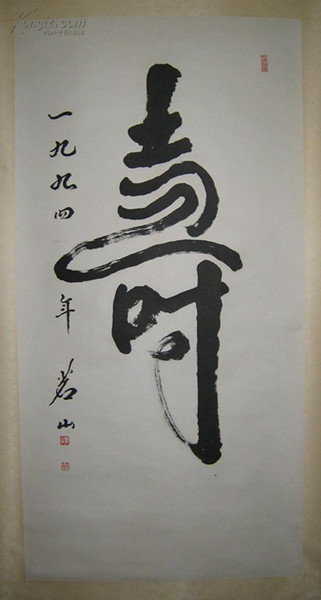 壽
一九九四年 茗山